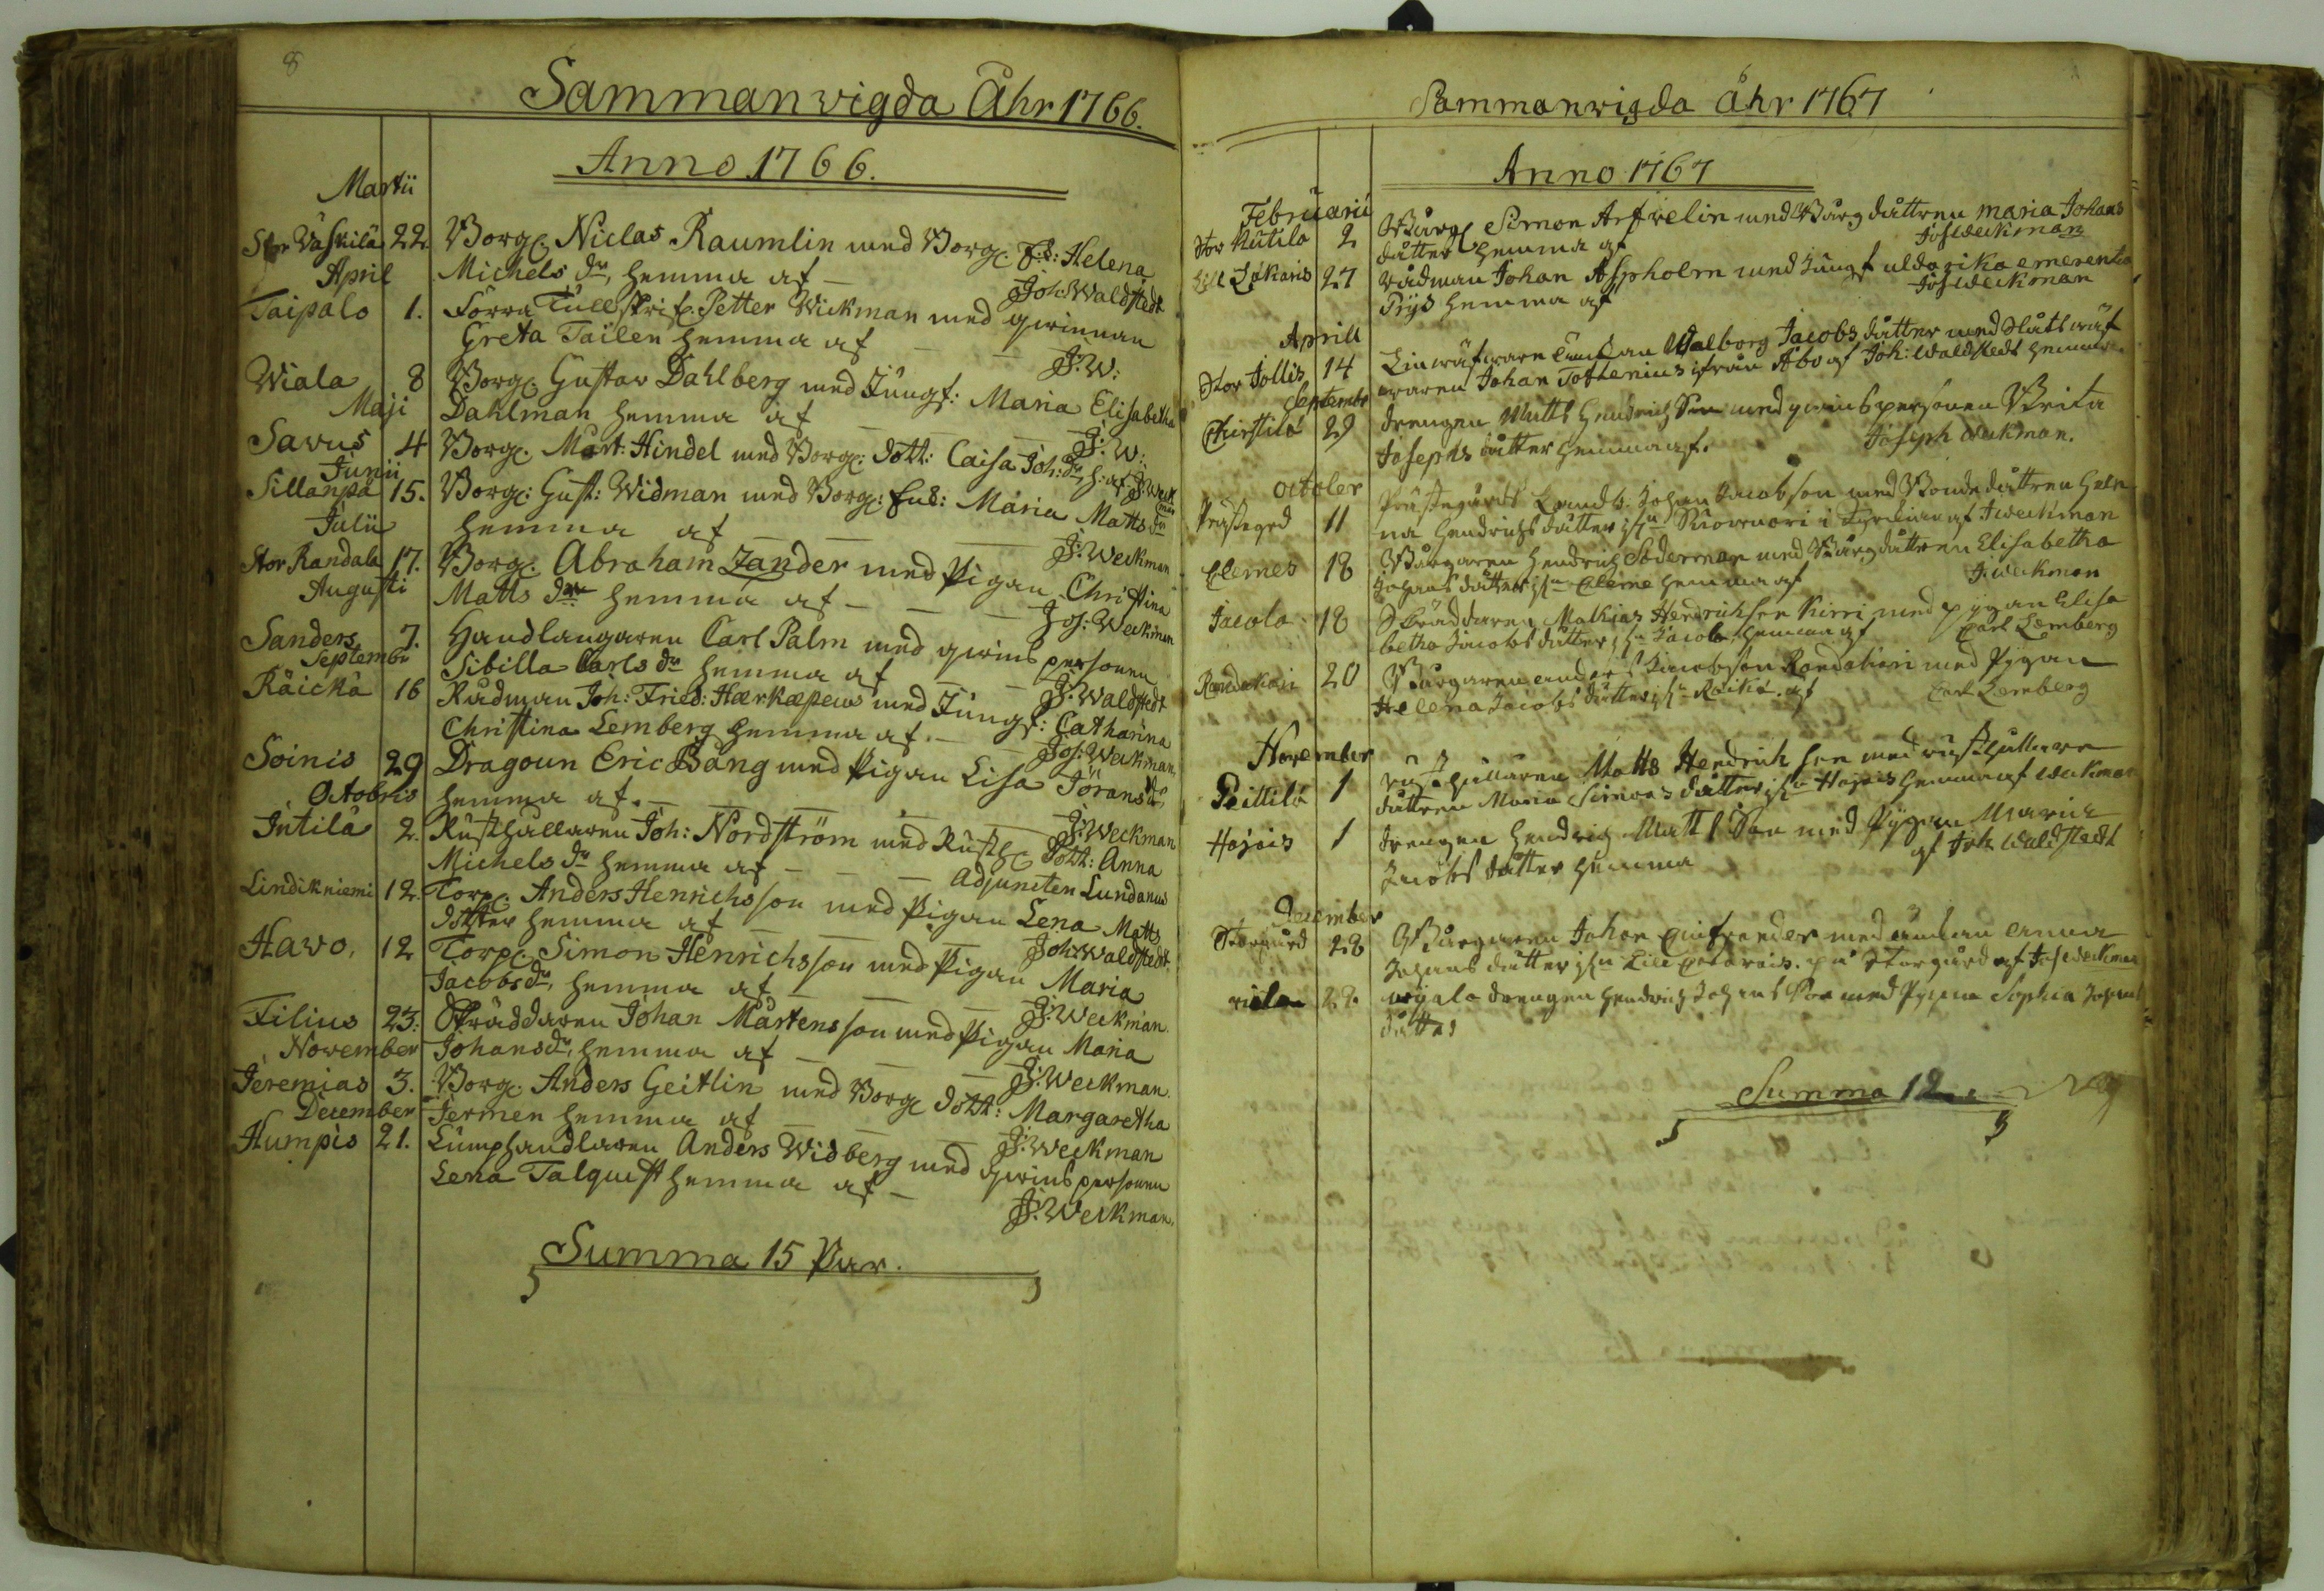 8
Sammanvigda Åhr 1766.
Anno 1766.
Martii
Stor Waskila 22. Borg. Niclas Raumlin med Borg. Enk: Helena
April
Michels dr, hemma af — Joh: Waldstedt
Taipalo 1. Förra Tullskrif. Petter Wickman med qwinnan
Greta Tailen hemma af — — J: W:
Wiala 8 Borg. Gustav Dahlberg med Jungf: Maria Elisabetha
Maji
Dahlman hemma af — — J: W:
Savus 4 Borg. Mårt: Hindel med Borg: dott: Caisa Joh: dr h: af J: Weckman
Junii
Sillanpä 15. Borg: Gust: Widman med Borg: Enk: Maria Matts dr
Julii
hemma af — — J: Weckman
Stor Randala 17. Borg. Abraham Zander med Pigan Christina
Augusti
Matts dr hemma af — — Jos: Weckman
Sanders 7. Handlangaren Carl Palm med qwinspersonen
Septembr
Sibilla Carls dr hemma af — J: Waldstedt
Räickä 16 Rådman Joh: Fried: Hærkæpeus med Jungf: Catharina
Christina Lemberg hemma af. — Jos: Weckman.
Soinis 29 Dragoun Eric Bång med Pigan Lisa Jörans dr
Octobris
hemma af. — — J: Weckman
Jutila 2. Rusthållaren Joh: Nordström med Rusth: Dott: Anna
Michels dr hemma af — — Adjuncten Lundanus
Lindikniemi 12. Torp. Anders Henrichsson med Pigan Lena Matts
dotter hemma af — Joh: Waldstedt
Havo, 12 Torp. Simon Henrichsson med Pigan Maria
Jacobs dr, hemma af — — J: Weckman.
Filius 23: Skräddaren Johan Mårtensson med Pigan Maria
November
Johansdr, hemma af — — J: Weckman.
Jeremias 3. Borg. Anders Geitlin med Borg dott: Margaretha
December
Jermen hemma af — — J: Weckman
Humpis 21. Lumphandlaren Anders Widberg med qwinspersonen
Lena Talquist hemma af — J: Weckman.
Summa 15 Par.
Sammanvigda åhr 1767
Anno 1767
Februarii
Stor Rutila 2 Bårg Simon Arfvelin med Bårg dåttren Maria Johans
dåtter hemma af Jos Weckman
Lill Zakaris 27 Rådman Johan Aspholm med Jungf uldarika emerentia
Prys hemma af Jos Weckman
Aprill
Stor Jollis 14 Linwäfwaren Enkan Walborg Jacobs dåtter med
waren Johan Tofferius ifrån Åbo af Joh: Waldstedt hemma.
Septembr
Christilä 29 drengen Matts Hendrich Son med qwinspersonen Brita
Josephs dåtter hemma af. Joseph Weckman.
october
Prästegrd 11 Prästegårds Landb. Johan Jacobson med Bondedåttren Hele
na Hendrichs dåtter i Tyrvis af J Weckman
Clemes 18 Bårgaren Hendrich Söderman med Bårgdåttren Elisabetha
Johans dåtter ifrn Cleme hemma af J: Weckman
Jacola 18 Skräddaren Mathias Hendrichsen Kirri med pygan Elisa
betha Jacobs dåtter ifrn Jacola hemma af Carl Lemberg
Randakari 20 Bårgaren anders Jacobson Randakari med Pygan
Helena Jacobs dåtter ifrn Räikä. af Carl Lemberg
November
Peittilä 1 rusthållaren Matts Hendrich sen med rusthållare
dåttren Maria Simons dåtter ifrn Hajois hemma af Weckman
Hajois 1 drengen Hendrich Matts Son med Pygan Maria
Jacobs dåtter hemma af Joh Waldstedt
December
Storgård 28 Bårgaren Johan med änkan anna
Johans dåtter ifrn Lill på Storgård af Jos Weckman
viala 29. wyala drengen Hendrich Johans Son med Pygan Sophia Johans
dåtter
Summa 12